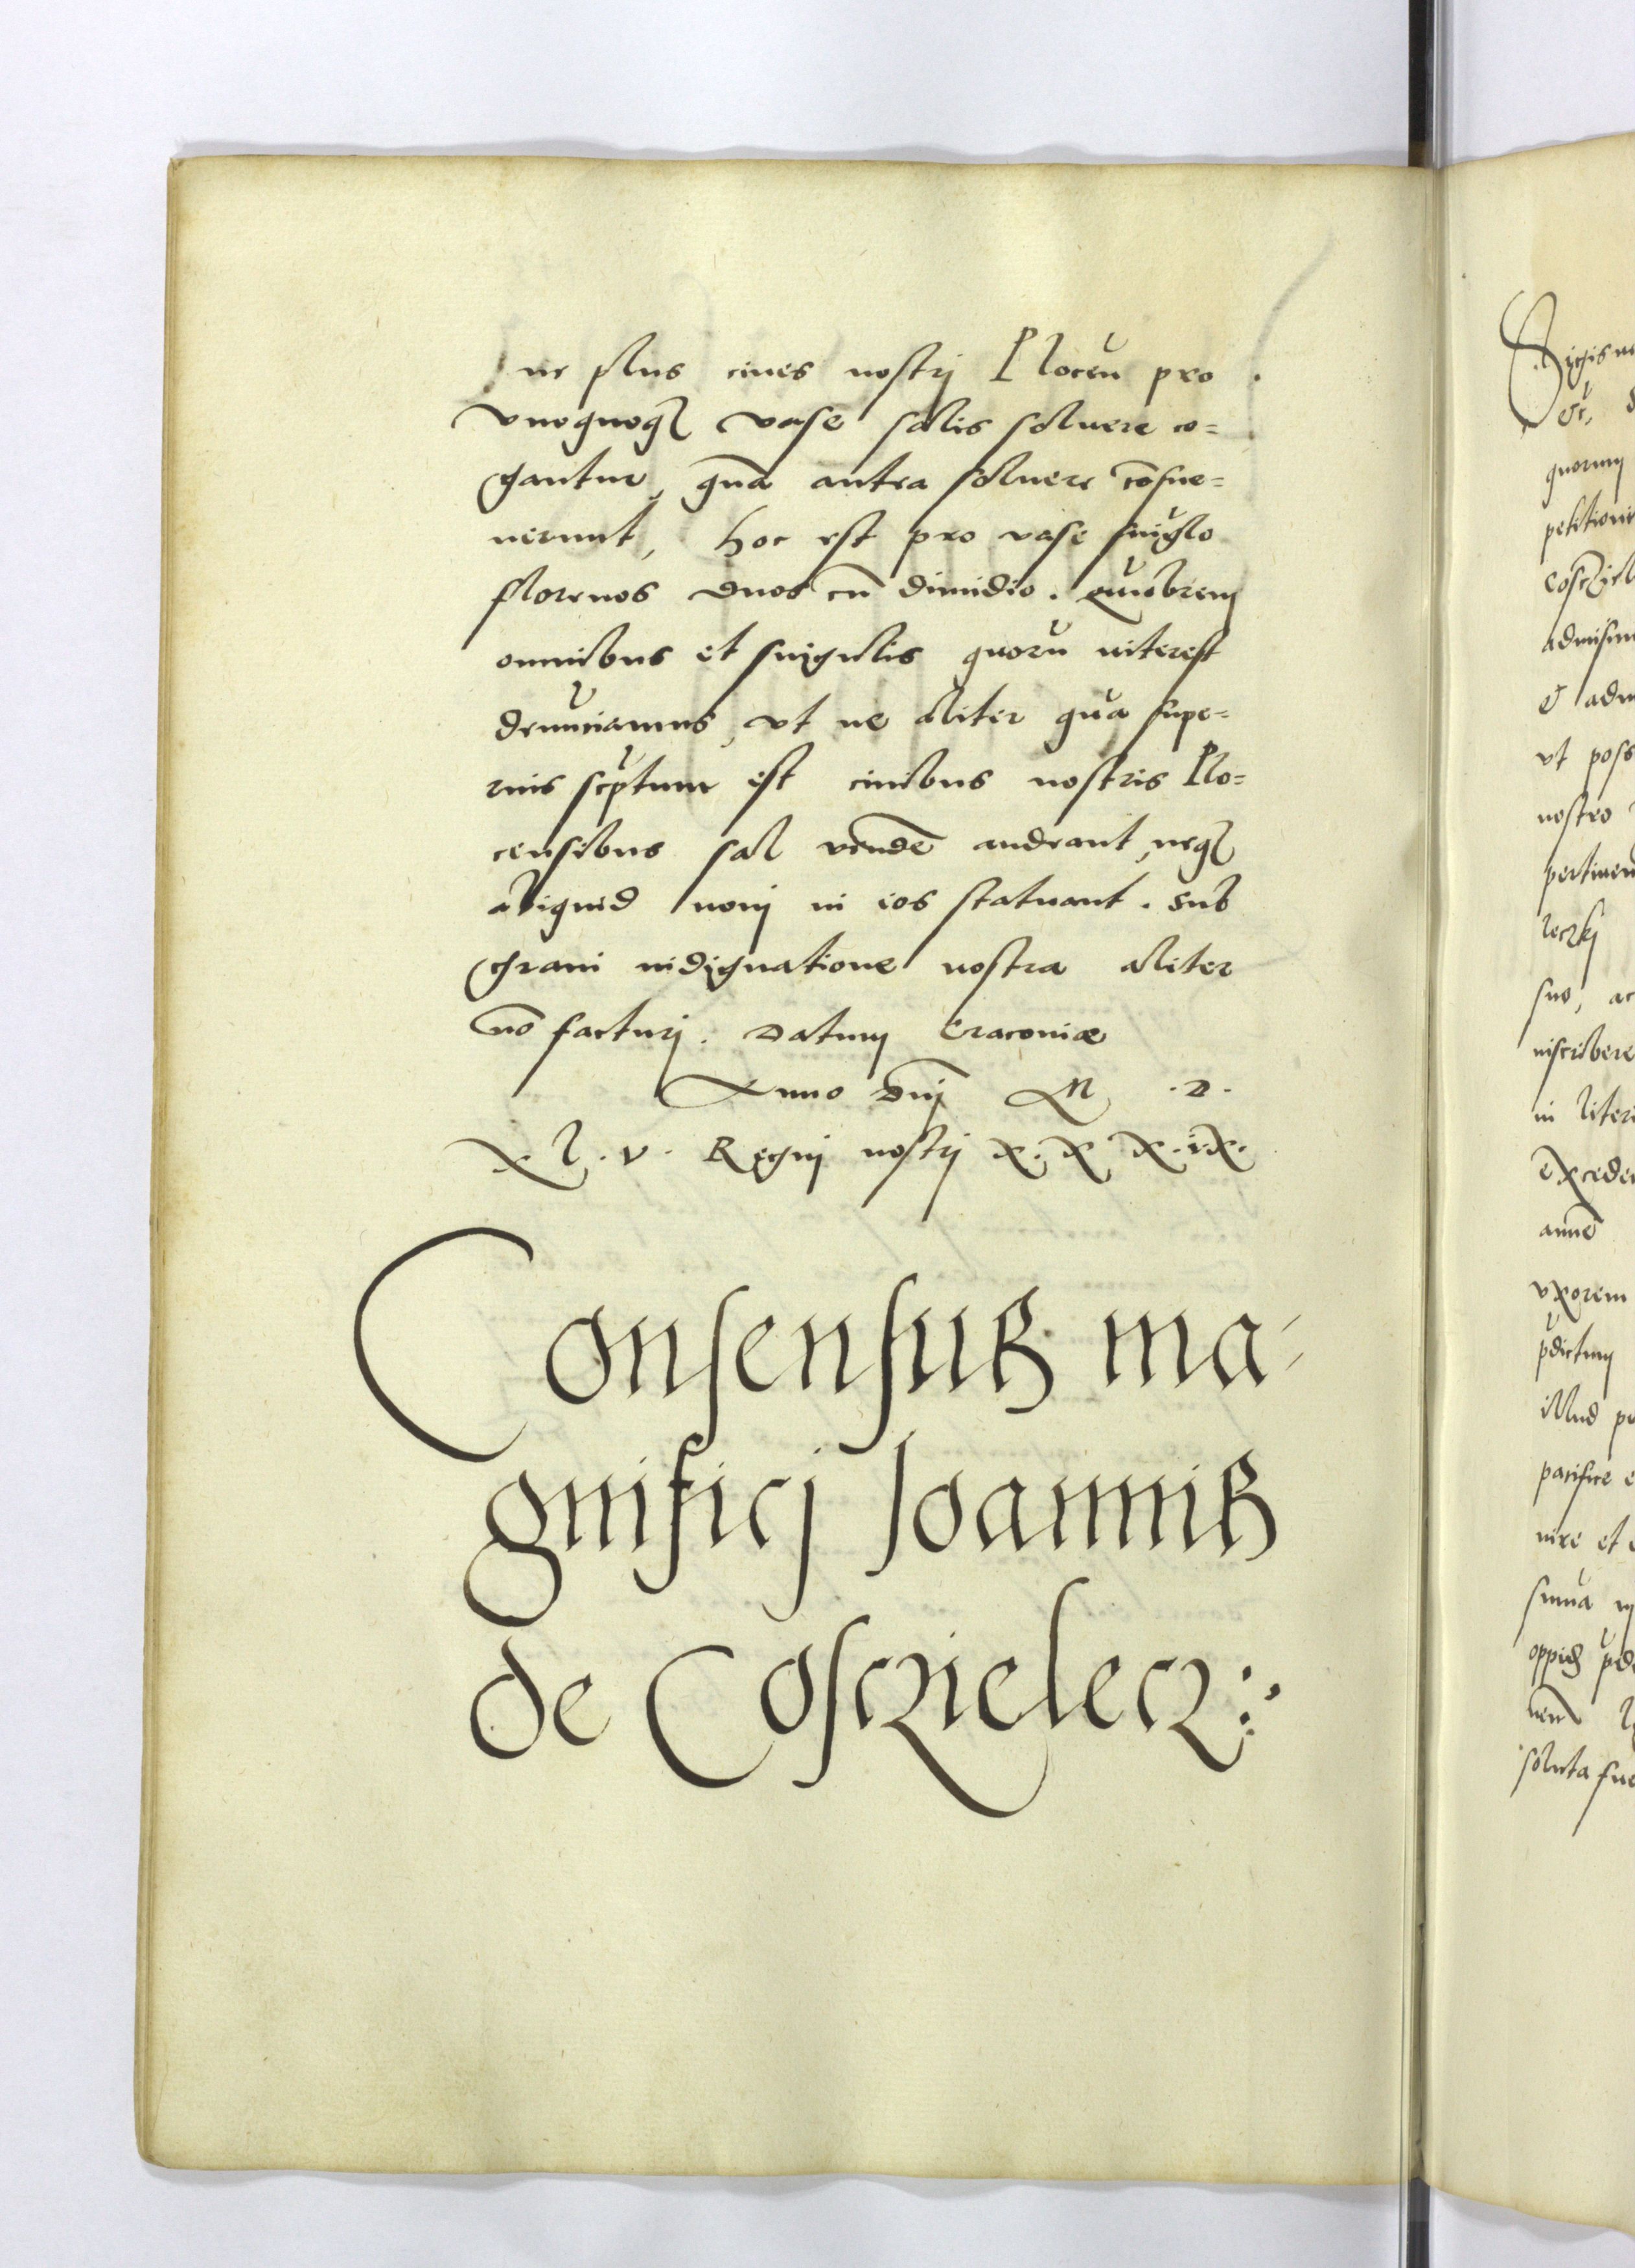 ne plus ciues nostrj Ploceñ pro
vnoquoqȝ vase salis soluere co=
gantur, qua᷈ antea soluere co᷈sue=
uerunt, hoc est pro vase sing̃lo
florenos duos cu᷈ dimidio. Quiobrem
omnibus et singulis quoru᷈ interest
denu᷈ciamus, vt ne aliter qua᷈ supe=
rius scp̃tum est ciuibus nostris Plo=
censibus sal vende᷈ audeant, neqȝ
aliquid nouj in eos statuant. Sub
graui indignatione nostra aliter
no᷈ facturj. Datum Cracouiæ
Anno Dn᷈j M .D.
XL.V. Regnj nostrj X.X X.i.X.
Consensus ma-
gnificj Joannis
de Cosczielecz:
Sigis
Et,
quorum
petitioni
coscziel
admisim
& adm
vt poss
nostro
pertinen
leczkj
suo, ac
inscribere
in liter
excede
anne᷈
vxorem
p̃dictum
illud p
pacifice e
nire et
summa᷈
oppid p̃d
ueñ
soluta fue